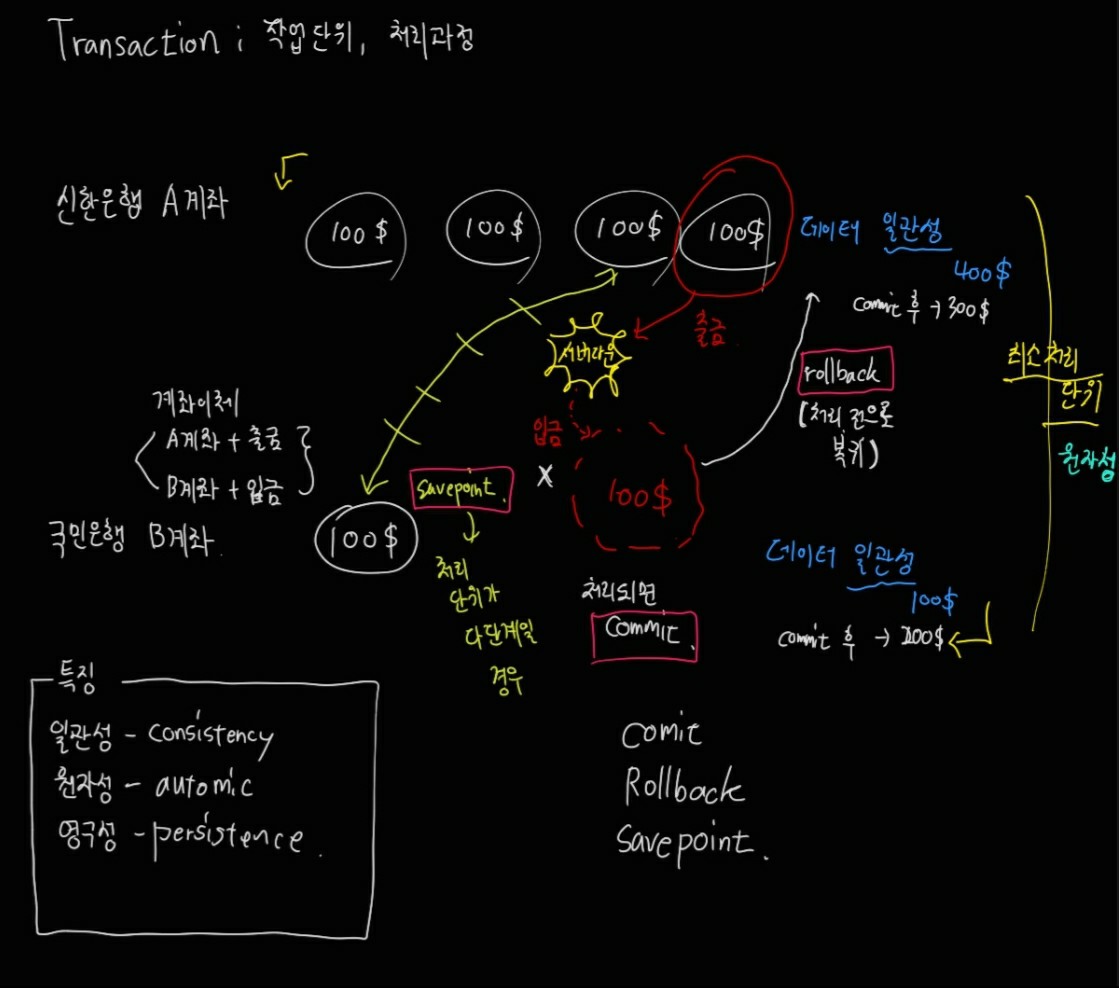 Transaction ; 작업단위, 처리과정
신한은행 A계좌
100$
100$
100$
100$
데이터 일관성
400$
commit 후 → 300$
출금
서버다운
최소처리
단위
원자성
rollback
(처리 전으로
복귀)
계좌이체
A계좌 + 출금
B계좌 + 입금
입금
savepoint.
x
100$
국민은행 B계좌.
100$
처리
단위가
다단계일
경우
처리되면
Commit.
데이터 일관성
100$
commit 후 → 200$
특징
일관성 - consistency
원자성 - automic
영구성 - persistence.
comit
Rollback
Savepoint.